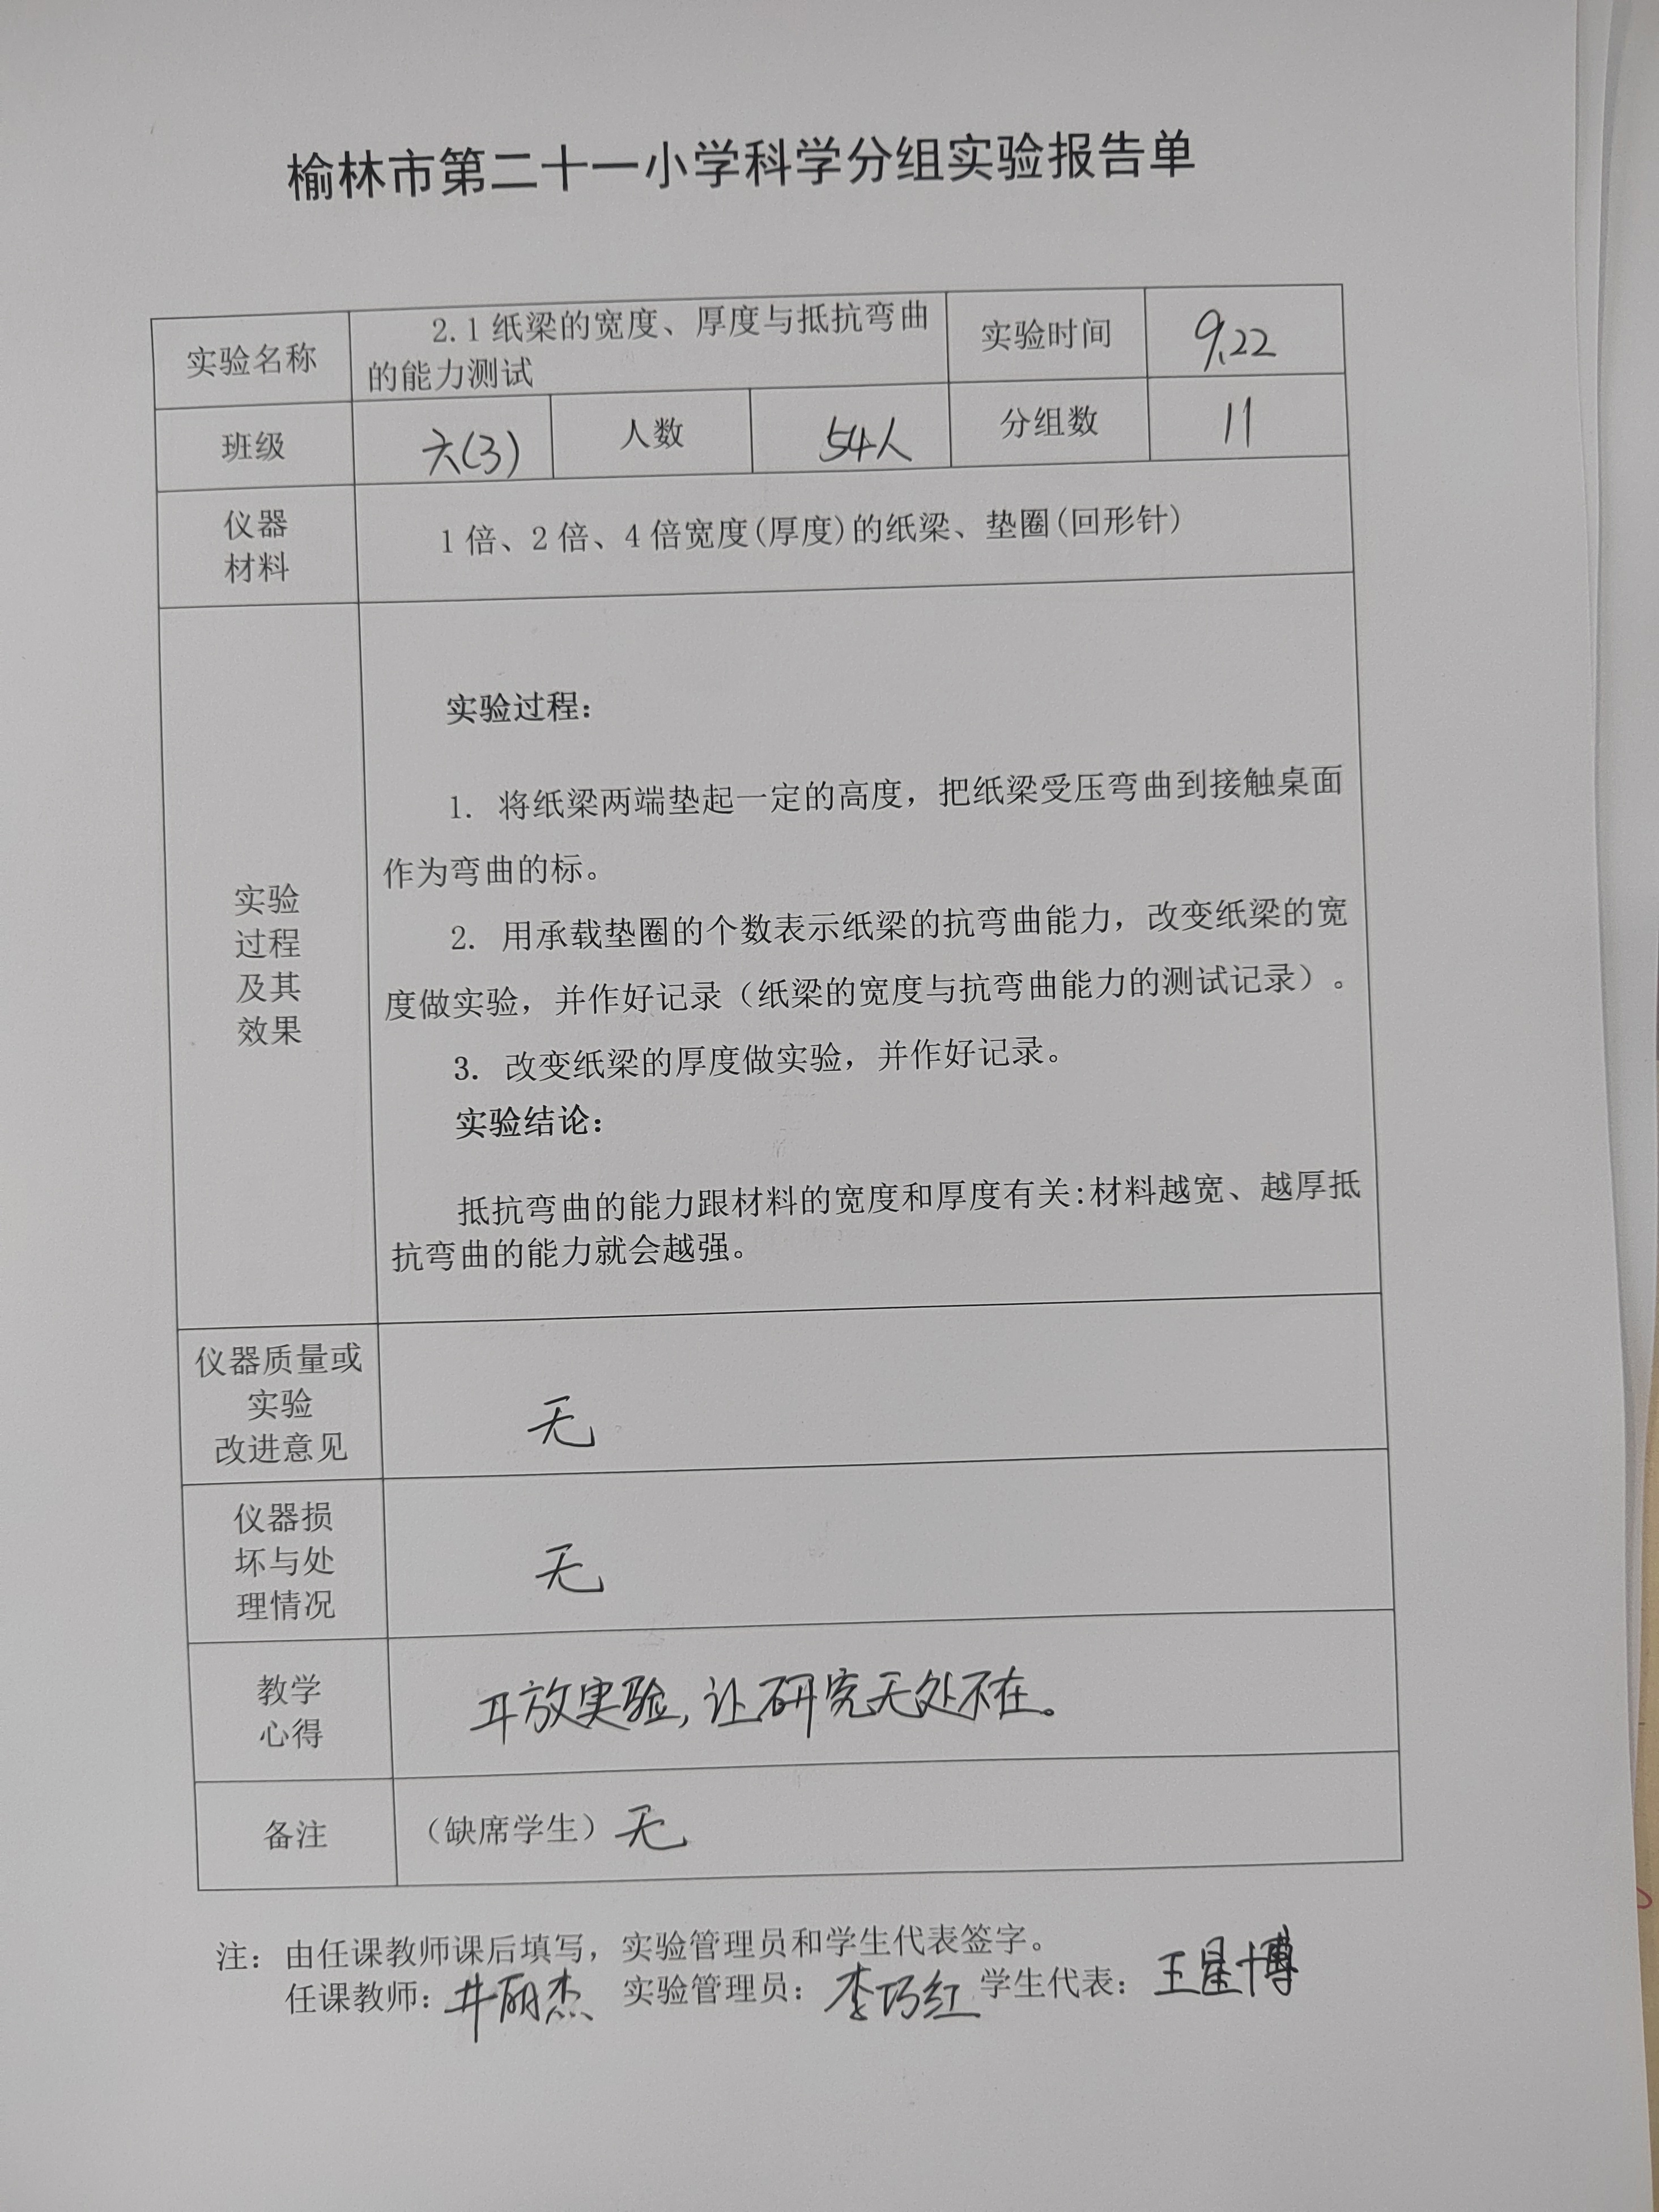 榆林市第二十一小学科学分组实验报告单
实验名称
2.1纸梁的宽度、厚度与抵抗弯曲
的能力测试
实验时间
9.22
班级
六(3)
人数
54人
分组数
11
仪器
材料
1倍、2倍、4倍宽度(厚度)的纸梁、垫圈(回形针)
实验
过程
及其
效果
实验过程：
1. 将纸梁两端垫起一定的高度，把纸梁受压弯曲到接触桌面
作为弯曲的标。
2. 用承载垫圈的个数表示纸梁的抗弯曲能力，改变纸梁的宽
度做实验，并作好记录（纸梁的宽度与抗弯曲能力的测试记录）。
3. 改变纸梁的厚度做实验，并作好记录。
实验结论：
抵抗弯曲的能力跟材料的宽度和厚度有关:材料越宽、越厚抵
抗弯曲的能力就会越强。
仪器质量或
实验
改进意见
无
仪器损
坏与处
理情况
无
教学
心得
开放实验，让研究无处不在。
备注
（缺席学生）无
注：由任课教师课后填写，实验管理员和学生代表签字。
任课教师：井丽杰 实验管理员：李巧红 学生代表：王星博